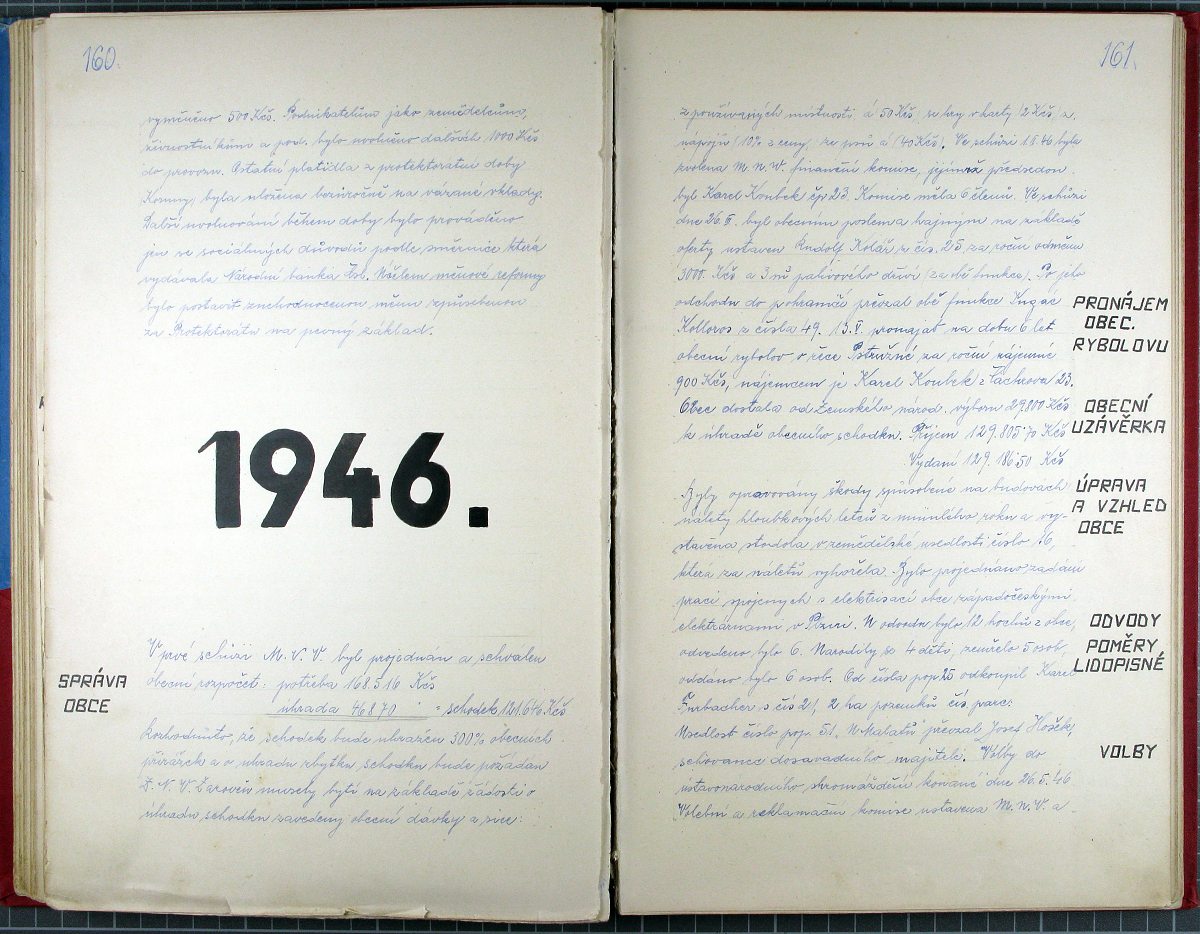 160.
vyměněno 500 Kčs. Podnikatelům jako zemědělcům,
živnostníkům a pod. bylo uvolněno dalších 1000 Kčs
do provozu. Ostatní platidla z protektorátní doby
Koruny, byla uložena bezúročně na vázané vklady.
Další uvolnování během doby bylo prováděno
jen ze sociálných důvodů podle směrnice která
vydávala Národní banka čsl. Účelem měnové reformy
bylo postavit znehodnocenou měnu způsobenou
za Protektorátu na pevný základ.
1946.
SPRÁVA
OBCE
V prvé schůzi M. N. V. byl projednán a schválen
obecní rozpočet: potřeba 168.516 Kčs
uhrada 46870 " = schodek 121.646 Kčs
Rozhodnuto, že schodek bude uhražen 300% obecních
přirážek a o uhradu zbytku schodku bude požádán
Z. N. V. Zároveň musely býti na základě žádosti o
úhradu schodku zavedeny obecní dávky a sice:
161.
z používaných místností á 50 Kčs, ze hry v karty (2 Kčs) z
nápojů (10% z ceny) ze psů á (40 Kčs). Ve schůzi 1.6.46 byla
zvolena M. N. V. finanční komise, jejímž předsedou
byl Karel Koubek čp 23. Komise měla 6 členů. Ve schůzi
dne 26. byl obecním poslem a hajným na základě
oferty ustaven Rudolf Kolář z čís. 25 za roční odměnu
3000 Kčs a 3 m palivového dříví (za obě funkce). Po jeho
odchodu do pohraničí převzal obě funkce Ingac
Kolloros z čísla 49. 13. V. pronajat na dobu 6 let
obecní rybolov v řece Pstružné za roční nájemné
900 Kčs, nájemcem je Karel Koubek z Čachrova 23.
Obec dostala od Zemského národ. výboru 29.800 Kčs
k úhradě obecního schodku. Příjem 129.805.70 Kčs
Vydání 129.186.50 Kčs
Byly opravovány škody způsobené na budovách
nálety hloubkových letců z minulého roku a vy-
stavěna stodola v zemědělské usedlosti číslo 16,
která za náletů vyhořela. Bylo projednáno zadání
prací spojených s elektrisací obce západočeskými
elektrárnami v Plzni. U odvodu bylo 12 hochů z obce,
odvedeno bylo 6. Narodily se 4 děti, zemřelo 5 osob,
oddáno bylo 6 osob. Od čísla pop 25 odkoupil Karel
Furbacher s čís 21, 2 ha pozemků čís. parc:
Usedlost číslo pop. 51. "U Mabatů" převzal Josef Hošek,
schovanec dosavadního majitele. Volby do
ústavonárodního shromáždění konané dne 26.5.46
Volební a reklamační komise ustavena M. N. V. a
PRONÁJEM
OBEC.
RYBOLOVU
OBECNÍ
UZÁVĚRKA
ÚPRAVA
A VZHLED
OBCE
ODVODY
POMĚRY
LIDOPISNÉ
VOLBY